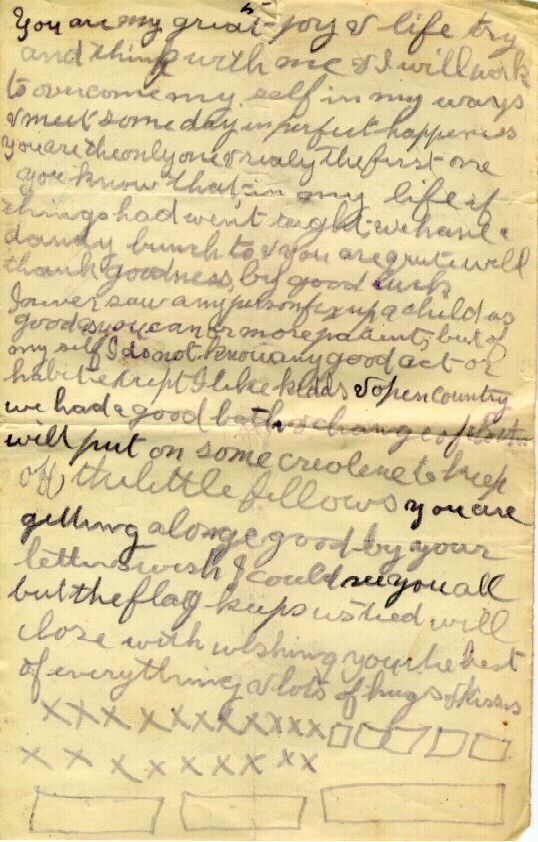 5-
You are my great joy & life try
and thing with me & I will work
to overcome my self in my ways
& meet some day in perfect happenies
you are the only one & realy the first one
you know that, in my life if
things had went right we have a
dandy bunch to & you are grate will
thank goodness, by good luck
I never saw any person fix up a child as
good as you can or more patient, but of
my self I do not know any good act or
habit exept I like kids & open country
we had a good bath & change of
will put on some creolene to keep
off the little fellows you are
getting alonge good by your
letters wish I could see you all
but the flag keeps us tied will
close with wishing you the best
of everything & lots of hugs & kisses
x x x x x x x x x x x
x x x x x x x x x